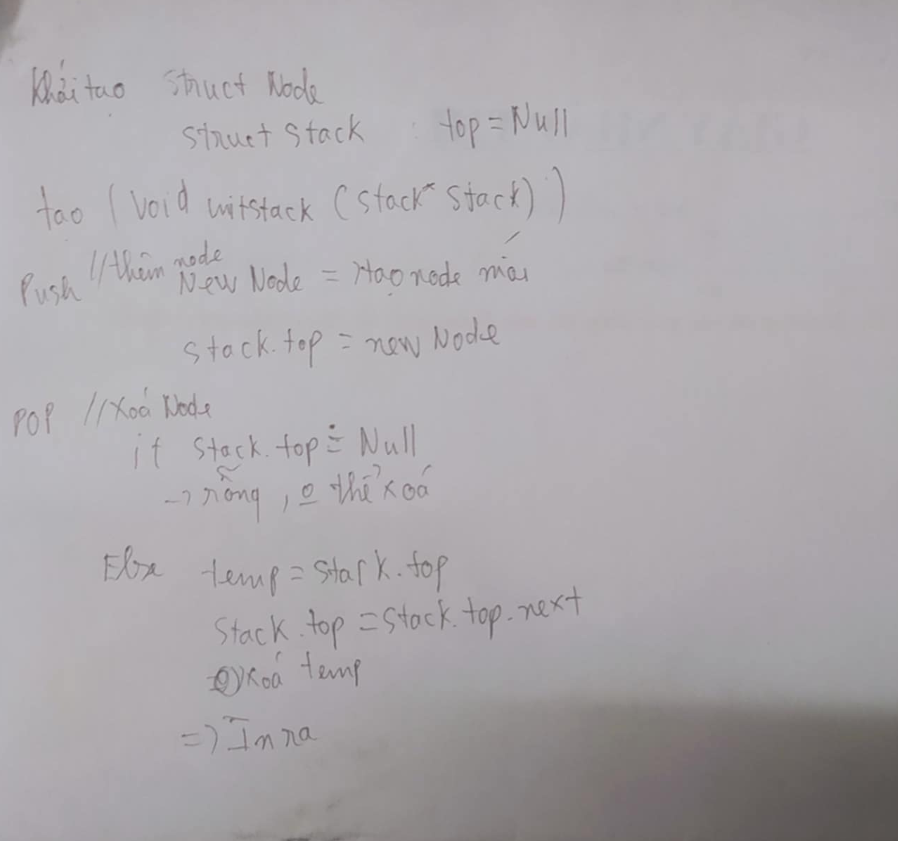 Khởi tạo Struct Node
Struct Stack : top = Null
tạo (Void initstack (Stack* Stack))
Push //thêm node
New Node = tạo node mới
stack.top = new Node
POP //Xoá Node
if Stack.top = Null
-> rỗng, 0 thể xoá
Else temp = Stack.top
Stack.top = Stack.top.next
xoá temp
=> In ra